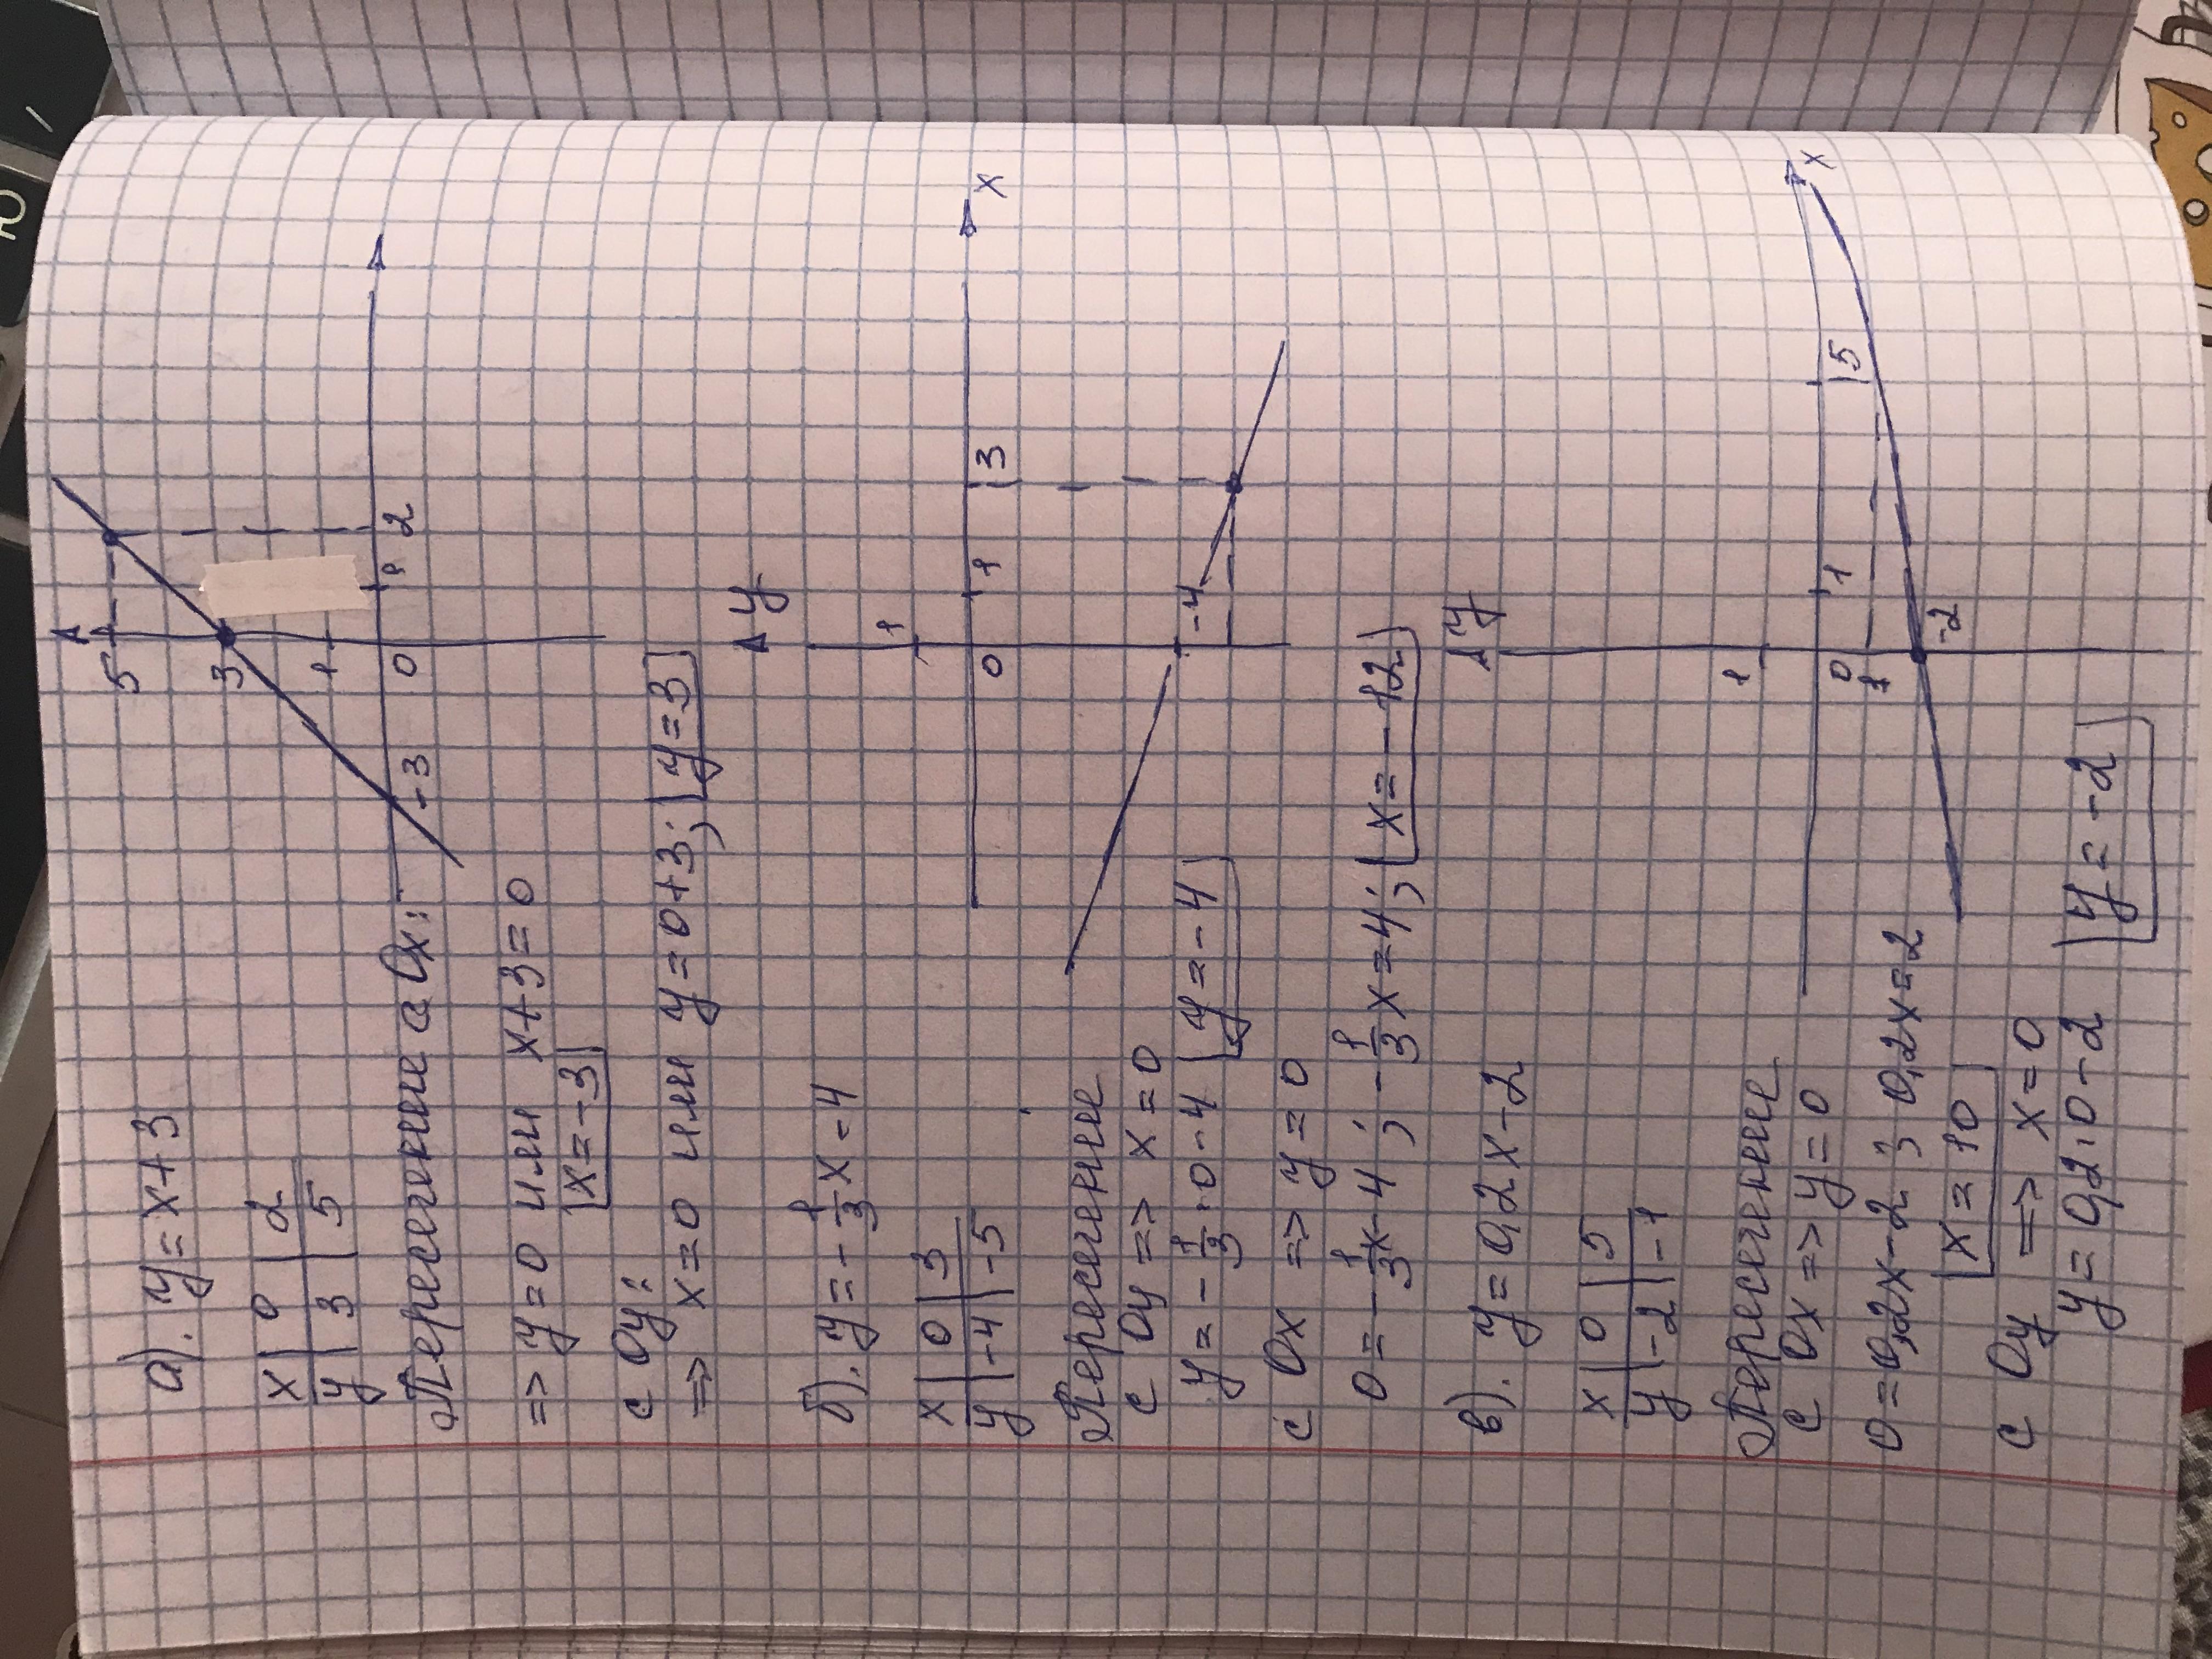 а). y = x+3
x | 0 | 2
y | 3 | 5
5
3
1
0
1
2
-3
Пересечение с Ox:
=> y=0 или x+3=0
x = -3
с Oy:
=> x=0 или y=0+3; y=3
б). y = -1/3 x - 4
x | 0 | 3
y | -4 | -5
y
1
0
1
3
x
-4
Пересечение
с Oy => x=0
y = -1/3 · 0 - 4 y = -4
с Ox => y=0
0 = -1/3 x - 4 ; -1/3 x = 4; x = -12
в). y = 0,2x - 2
x | 0 | 5
y | -2 | -1
y
1
0
1
5
x
-2
Пересечение
с Ox => y=0
0 = 0,2x - 2 ; 0,2x = 2
x = 10
с Oy => x=0
y = 0,2·0 - 2 y = -2
Ю